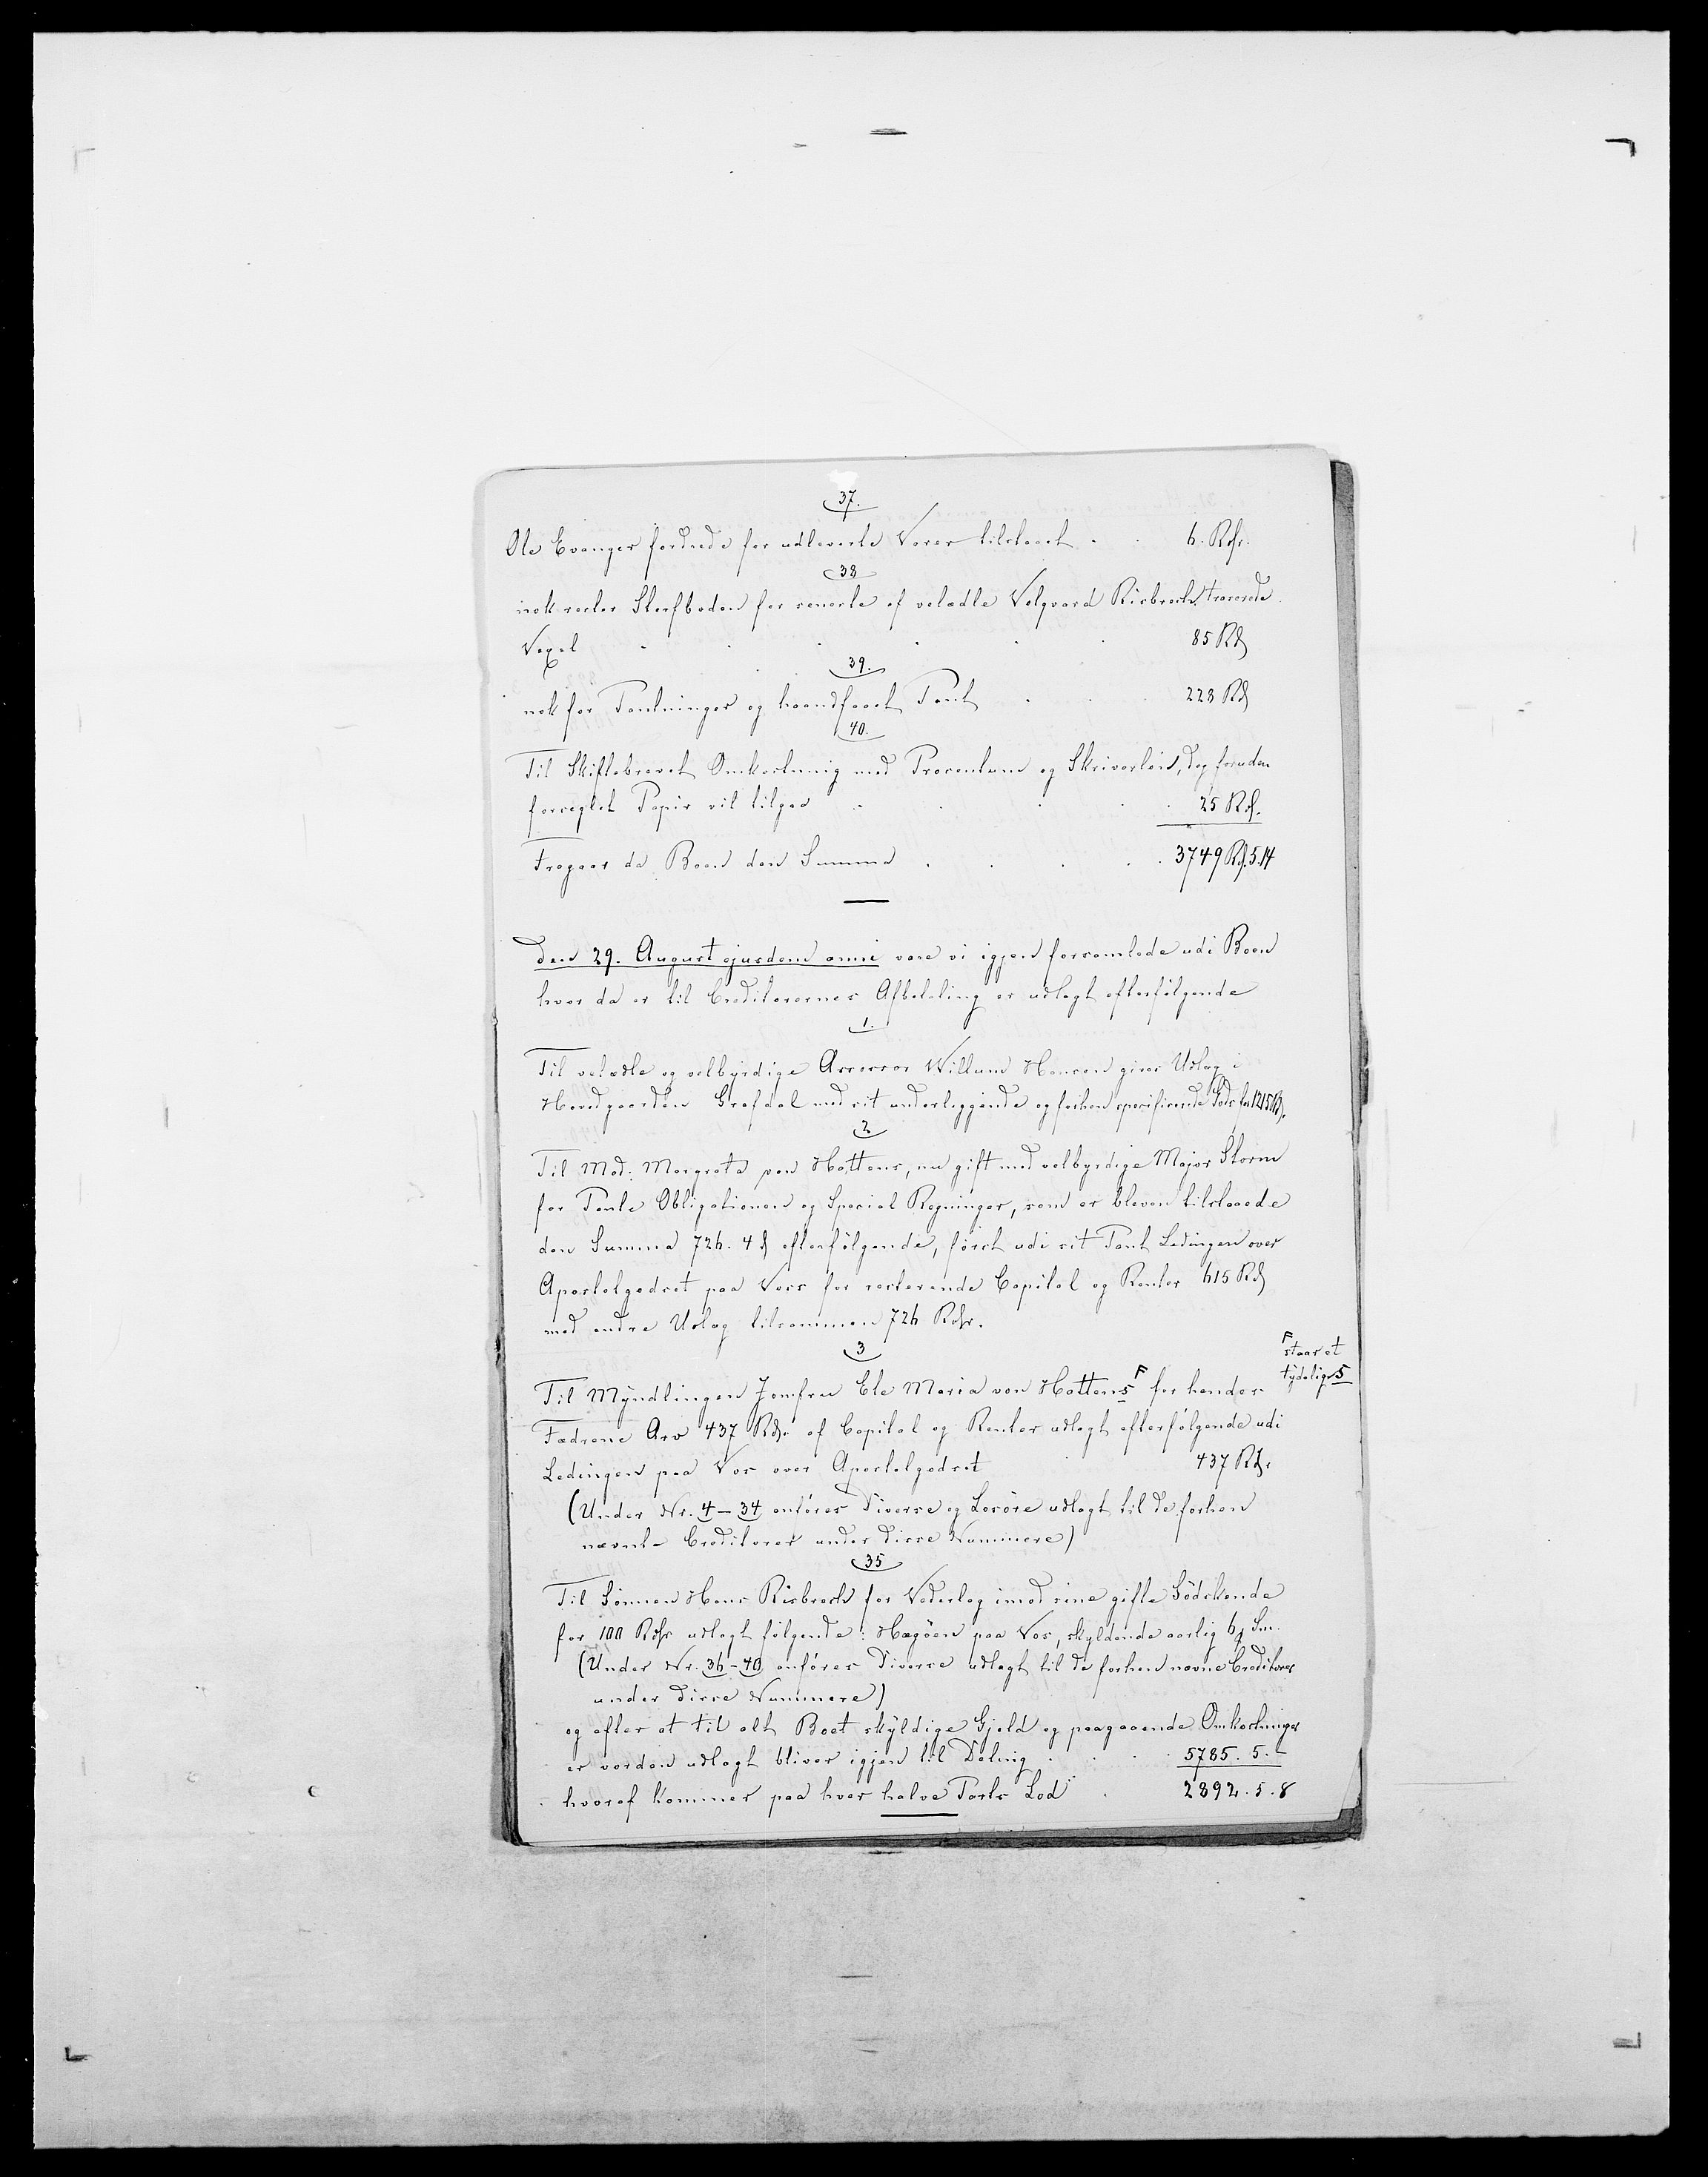 37.
Ole Evanger fordrede for udleverte Varer tilstaaet . . 6. Rdr.
38
nok rester Sterfboden for seneste af veledle Velgaard Risbrech traserede
Vexel . . . . . . 85 Rd
39.
nok for Pantninger og haandfaaet Pant . . . 228 Rd
40.
Til Skiftebrevet Omkostning med Procentum og Skriverløn, dog foruden
forseglet Papir vil tilgaa . . . . . 25 Rd.
Fragaar da Boen den Summa . . . . 3749 Rd. 5. 14
Den 29. August ejusdem anni vare vi igjen forsamlede udi Boen
hvor da er til Creditorernes Afbetaling er udlagt efterfølgende
1.
Til veledle og velbyrdige Assessor Willum Hansen giver Udlæg i
Hovedgaarden Grafdal med sit underliggende og forhen specificerede Gods for 1215 Rd.
2
Til Mad: Margreta von Hattens, nu gift med velbyrdige Major Storm
for Pante Obligationen og Special Regninger, som er bleven tilstaaede
den Summa 726. 4 efterfølgende, først udi sit Pant Ledingen over
Apostelgodset paa Voss for resterende Capital og Renter 615 Rd
med andre Udlæg tilsammen 726 Rdr.
3
Til Myndlingen Jomfru Ele Maria von Hattens F for hendes
F staar et
tydelig 5
Fædrene Arv 437 Rdr. af Capital og Renter udlagt efterfølgende udi
Ledingen paa Vos over Apostelgodset 437 Rd.
(Under Nr. 4 – 34 anføres Diverse og Løsøre udlagt til de forhen
nævnte Creditorer under disse Nummere)
35
Til Sønnen Hans Risbrech for Vederlag imod sine gifte Södskende
for 100 Rdr udlagt følgende: Hægöen paa Vos, skyldende aarlig 6 Sm.
(Under Nr. 36 – 40 anföres Diverse udlagt til de forhen nævne Creditorer
under disse Nummere)
og efter at til alt Boet skyldige Gjeld og paagaaende Omkostninger
er vorden udlagt bliver igjen til Deling . . . 5785. 5. –
hvoraf kommer paa hver halve Parts Lod . 2892. 5. 8